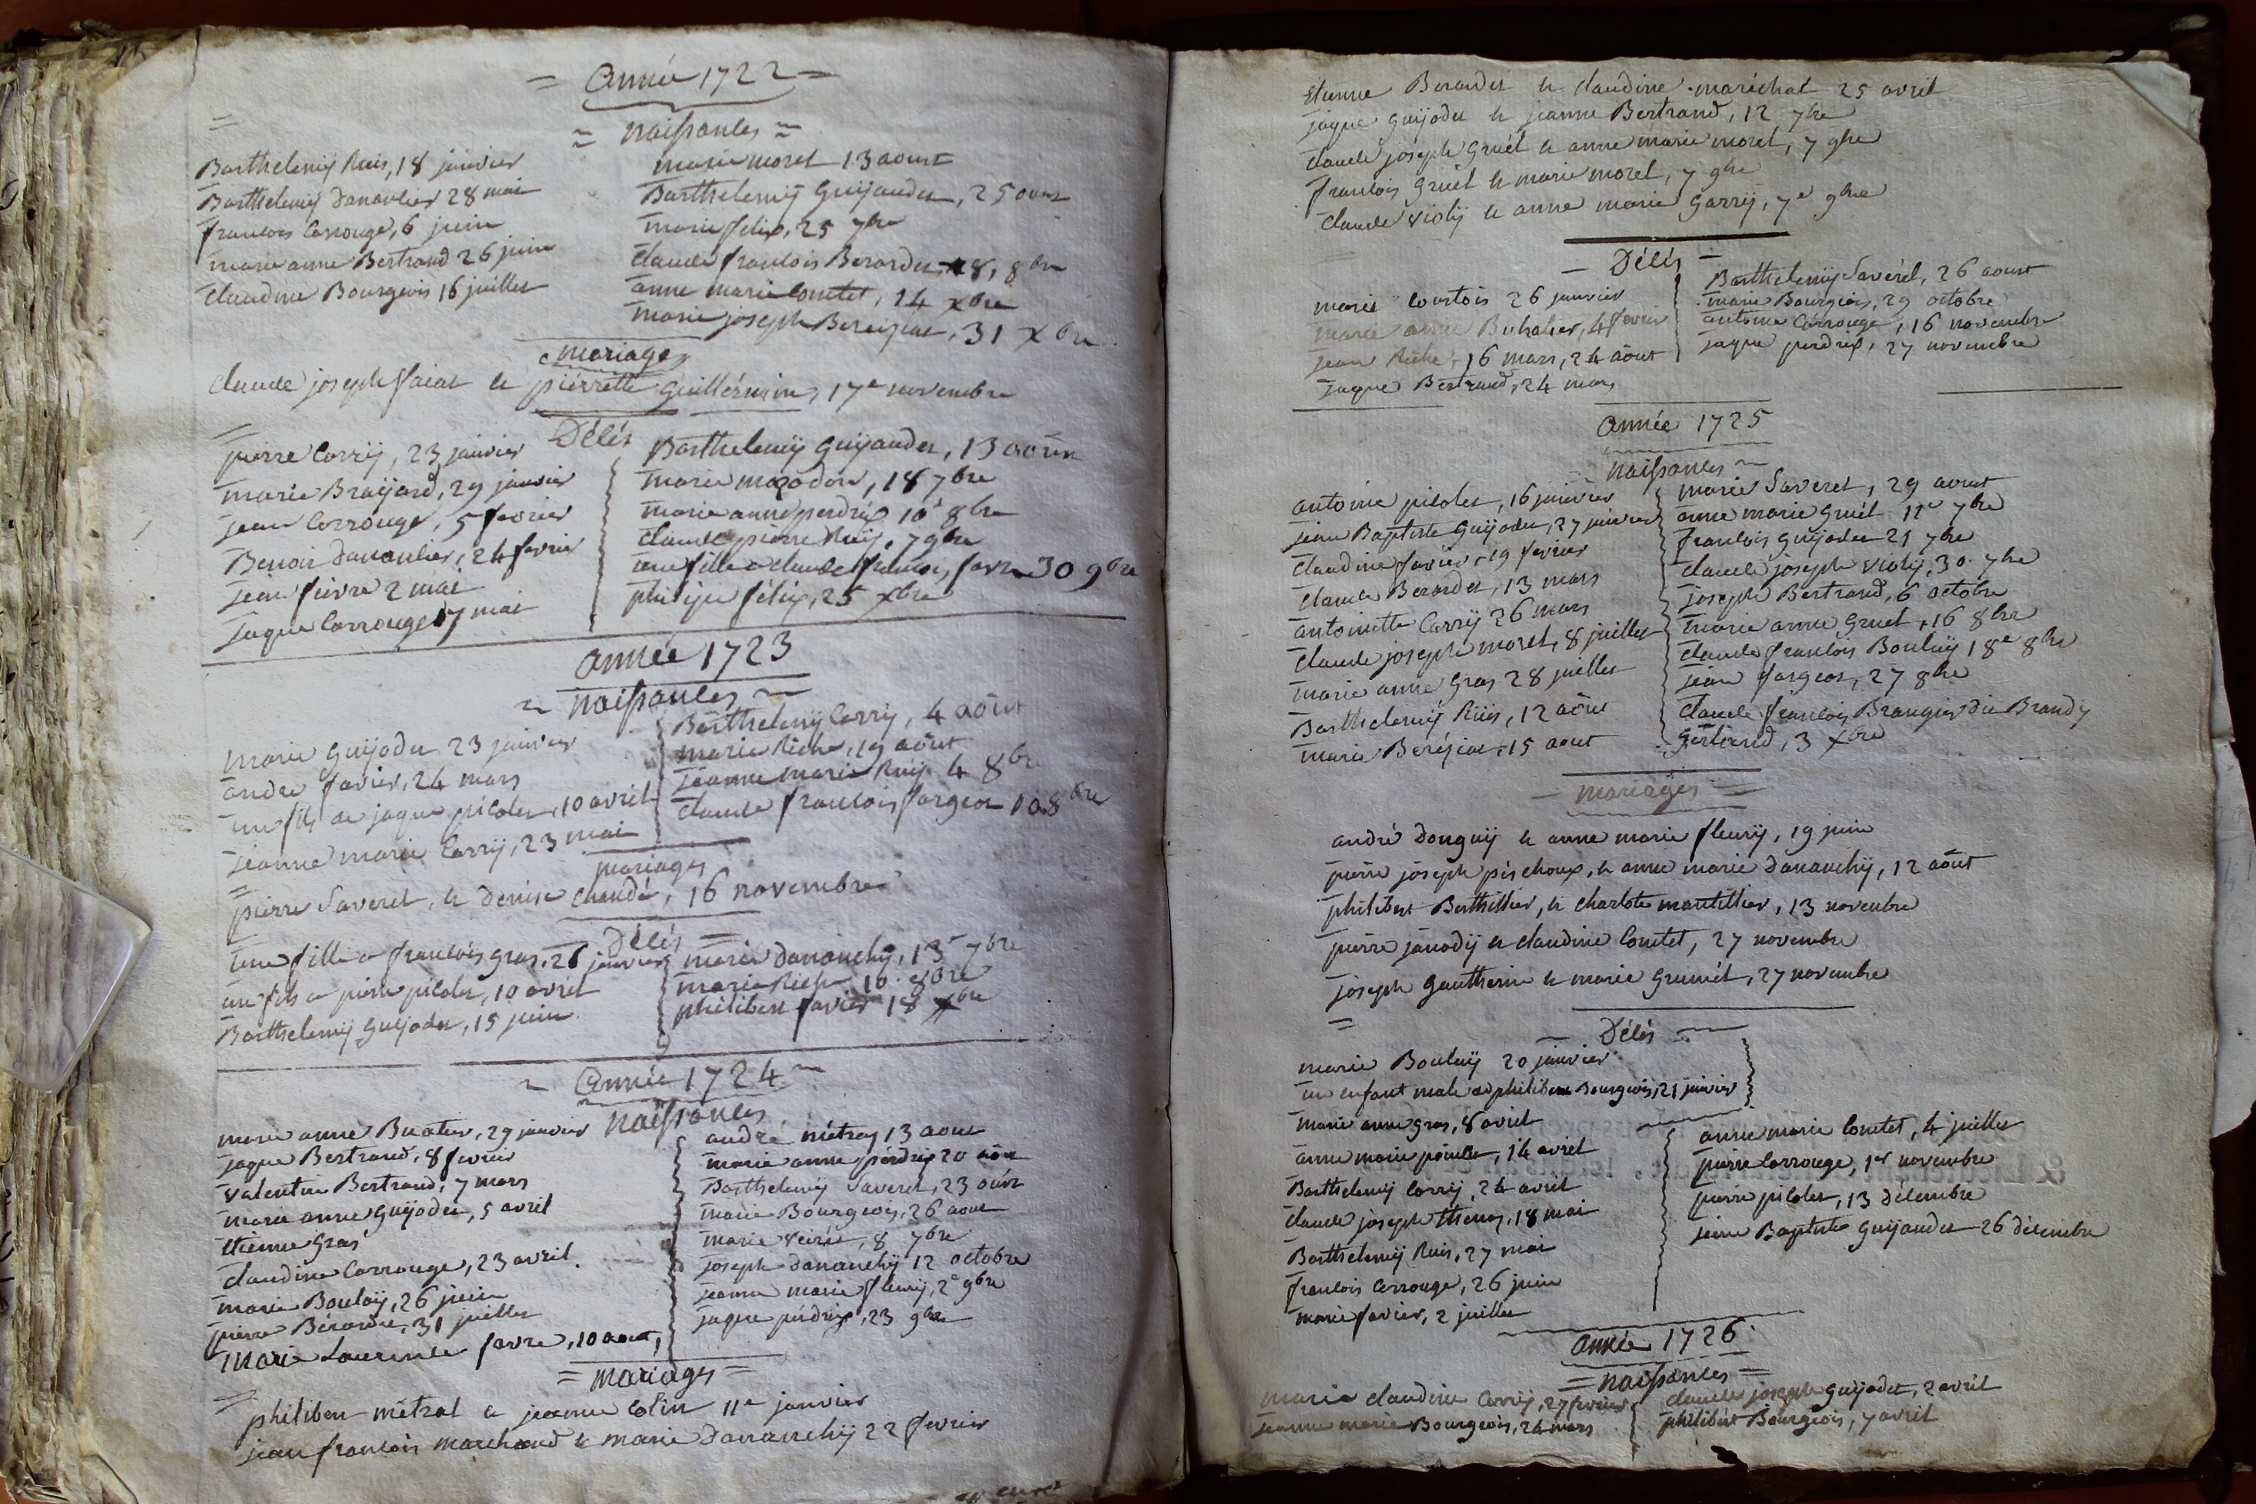 = Année 1722 =
= naissances =
Barthelemij Ruis, 18 janvier
Barthelemij Dananchier 28 mai
francois Carrouge, 6 juin
marie anne Bertrand 26 juin
Claudine Bourgeois 16 juillet
marie moret 13 aoust
Barthelemij Guijaudet, 25 aoust
marie félix, 25 7bre
Claude francois Berardet 18, 8bre
anne marie Comtet, 14 xbre
marie joseph Bereiziat, 31 xbre
mariages
Claude joseph faiat et pierrette Guillermin, 17e novembre
Décés
pierre Corrij, 23 janvier
marie Braijard, 29 janvier
jean Carrouge, 5 fevrier
Benoit Dananchier, 24 fevrier
jean fievre 2 mai
jaque Carrouge 17 mai
Barthelemij Guijaudet, 13 aoust
marie mazodon, 18 7bre
marie anne perdrix 10e 8bre
Claude pierre Ruij, 7 9bre
une fille a claude francois favre 30 9bre
philipe félix, 25 xbre
année 1723
naissances
marie Guijadet 23 janvier
andre favier, 24 mars
un fils de jaque picolet, 10 avril
jeanne marie Corrij, 23 mai
Barthelemij Corrij, 4 août
marie Riche, 19 août
jeanne marie Ruij 4 8bre
Claude francois fargeot 10 8bre
mariages
pierre Saveret, et Denise Chandé, 16 novembre
Décés
une fille a francois gras, 26 janvier
un fils a pierre picolet, 10 avril
Barthelemij Guijadet, 15 juin
marie Dananchij, 13e 7bre
marie Riche 10 8bre
philibert favier 18 xbre
Année 1724
naissances
marie anne Buatier, 29 janvier
jaque Bertrand, 8 fevrier
valentin Bertrand, 7 mars
marie anne Guijadet, 5 avril
Etienne Gras
Claudine Carrouge, 23 avril
marie Boulaij, 26 juin
pierre Bérardet, 31 juillet
Marie Laurence favre, 10 aout,
andré métray 13 aout
marie anne perdrix 20 août
Barthelemij Saveret, 23 août
marie Bourgeois, 26 aout
marie 8 7bre
joseph dananchij 12 octobre
jeanne marie fleurij, 2e 9bre
jaque perdrix, 23 9bre
= mariages =
philibert métral et jeanne Colin 11e janvier
jean francois marchand et marie Dananchij 22 fevrier
Etienne Berardet et claudine maréchal 25 avril
jaque guijadet et jeanne Bertrand, 12 7bre
Claude joseph Gruel et anne marie moret, 7 9bre
francois Gruel et marie moret, 7 9bre
Claude violij et anne marie Garrij, 7e 9bre
Décés
marie Courtois 26 janvier
marie anne Buhatier, 4 fevrier
jean Riche, 16 mars, 24 août
jaque Bertrand, 24 mars
Barthelemij Saverel, 26 aoust
marie Bourgeois, 29 octobre
antoine Carrouge, 16 novembre
jaque perdrix, 27 novembre
Année 1725
naissances
antoine picolet, 16 janvier
jean Baptiste Guijadet, 27 janvier
Claudine favier, 19 fevrier
Claude Berardet, 13 mars
antoinette Carrij 26 mars
Claude joseph moret, 8 juillet
marie anne Gras 28 juillet
Barthelemij Rüis, 12 août
marie Beréziat, 15 aout
marie Saveret, 29 aout
anne marie Gruel 11e 7bre
francois guijadet 21 7bre
Claude joseph violij, 30 7bre
joseph Bertrand, 6 octobre
marie anne Gruel, 16 8bre
Claude francois Boulaij 18e 8bre
jean fargeot, 27 8bre
Claude francois Brangier Die Brandy
Gertrand, 3 xbre
mariages
andré Donguij et anne marie fleurij, 19 juin
pierre joseph péchoux, et anne marie Dananchij, 12 août
philibert Berthillier, et charlote mantillier, 13 novembre
pierre janodij et claudine Comtet, 27 novembre
joseph Gautherin et marie Grumet, 27 novembre
Décés
marie Boulaij 20 janvier
un enfant male a philibert Bourgeois, 21 janvier
marie anne gras, 8 avril
anne marie 14 avril
Barthelemij Corrij, 24 avril
Claude joseph 18 mai
Barthelemij Ruis, 27 mai
francois Carrouge, 26 juin
marie favier, 2 juillet
anne marie Comtet, 4 juillet
pierre Carrouge, 1er novembre
pierre picolet, 13 décembre
jean Baptiste Guijaudet 26 décembre
année 1726
= naissances =
marie claudine Corrij, 27 fevrier
jeanne marie Bourgeois, 24 mars
claude joseph Guijadet, 2 avril
philibert Bourgeois, 7 avril